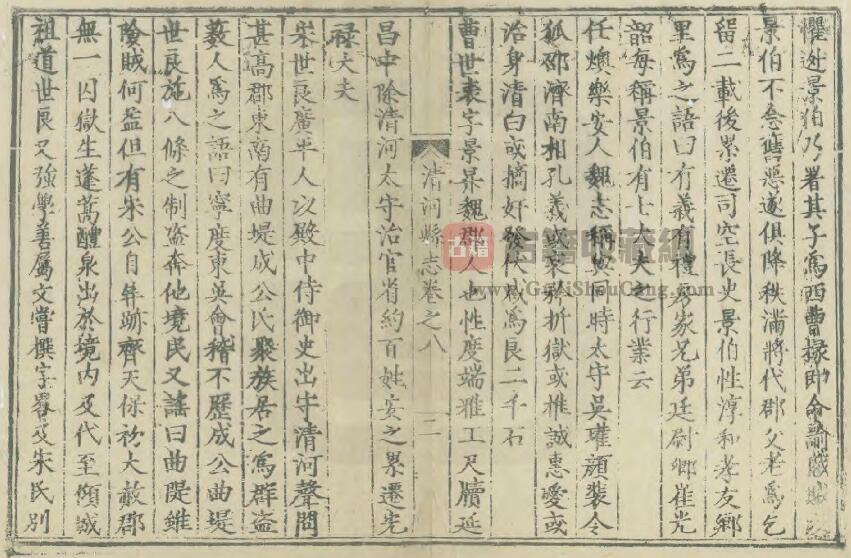 懼逃景伯乃署其子爲西曹掾卽命諭賊賊
景伯不念舊惡遂俱降秩滿將代郡父老爲乞
留二載後累遷司空長史景伯性淳和孝友鄉
里爲之語曰有義有禮房家兄弟廷尉卿崔光
韶每稱景伯有士大夫之行業云
任燠樂安人魏志稱與同時太守吳瓘顔裴令
狐邵濟南相孔義或哀矜折獄或推誠惠愛或
治身清白或摘奸發伏咸爲良二千石
曹世表字景昇魏郡人也性度端雅工尺牘延
清河縣志卷之八
二
昌中除清河太守治官省約百姓安之累遷光
祿大夫
宋世良廣平人以殿中侍御史出守清河聲問
甚高郡東南有曲堤成公氏聚族居之爲群盜
藪人爲之語曰寧度東吳會稽不歷成公曲堤
世良施八條之制盜奔他境民又謠曰曲隄雖
險賊何益但有宋公自屛跡齊天保初大赦郡
無一囚獄生蓬蒿醴泉出於境內及代至傾城
祖道世良又強學善屬文嘗撰字畧及宋氏別
古籍收藏網
www.GuJiShouCang.com
古籍